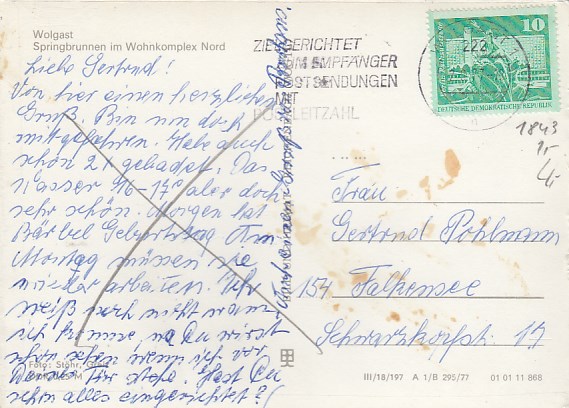 Wolgast
Springbrunnen im Wohnkomplex Nord
Liebe Gertrud!
Von hier einen herzlichen
Gruß. Bin nun doch
mitgefahren. Habe auch
schon 2x gebadet. Das
Wasser 16-17° aber doch
sehr schön. Morgen hat
Bärbel Geburtstag. Am
Montag müssen sie
wieder arbeiten. Ich
weiß noch nicht wann
ich komme, na Du wirst
schon sehen wenn ich vor
Deiner Tür stehe. Hast Du
schon alles eingerichtet?
Foto: Stöhr,
ZIELGERICHTET
ZUM EMPFÄNGER
POSTSENDUNGEN
MIT
POSTLEITZAHL
222
10
DEUTSCHE DEMOKRATISCHE REPUBLIK
1843
1,-
4,-
Frau
Gertrud Pohlmann
154 Falkensee
Schwarzkopfst. 19
III/18/197 A 1/B 295/77 01 01 11 868